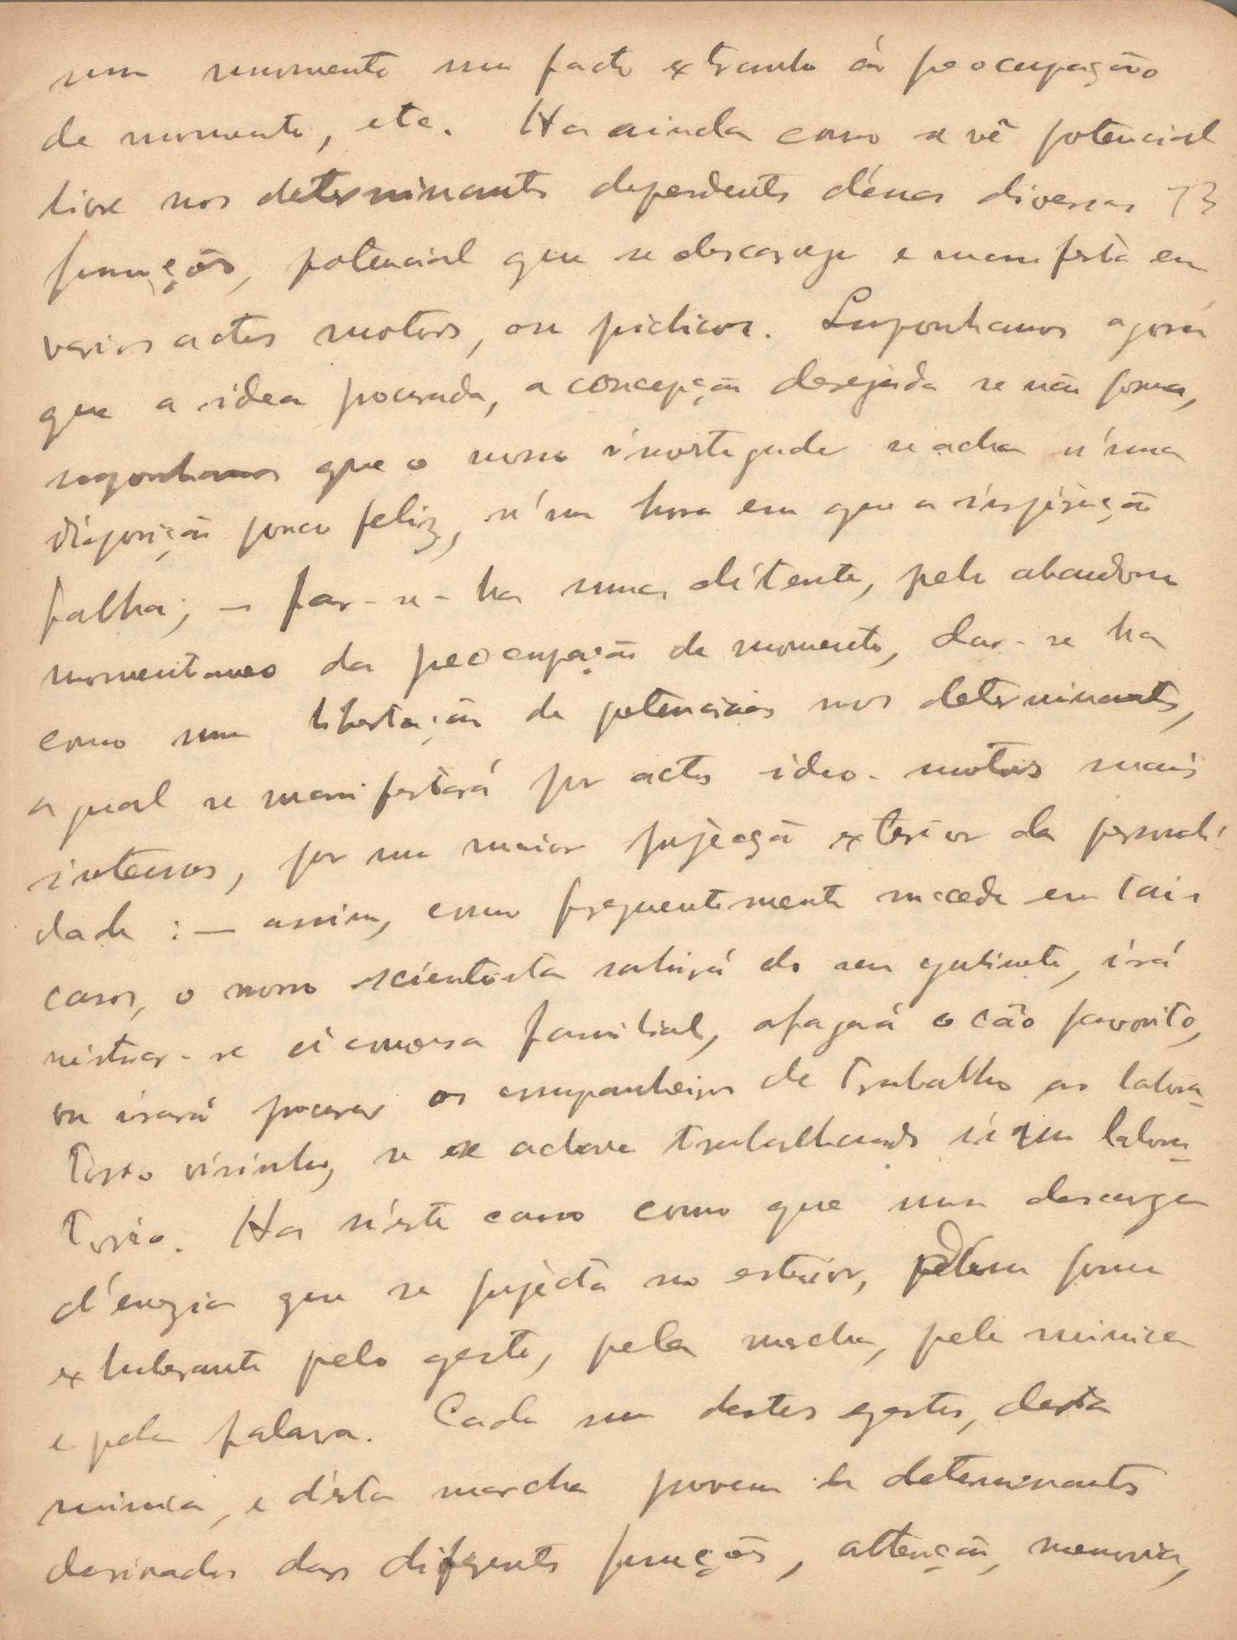 um momento um facto extranho á preocupação
de momento, etc. Ha ainda como se vê potencial
livre nos determinants dependents d'énas diversas 73
funções, potencial que se descarrega e manifesta em
varios actos motores, ou psichicos. Supponhamos agora
que a idea procurada, a concepção desejada se não forma,
supponhamos que o nosso investigador se acha n'uma
disposição pouco feliz, n'um hora em que a inspiração
falha; — far-se-ha uma détente, pelo abandono
momentaneo da preocupação de momento, dar-se ha
como uma libertação de potenciais nos determinants,
a qual se manifestará por actos ideo-motores mais
intensos, por um maior projecção exterior da personali-
dade : — assim, como frequentemente succede em tais
casos, o nosso scientista sahirá do seu gabinete, irá
misturar-se á conversa familial, afagará o cão favorito,
ou irá procurar os companheiros de trabalho ao labora-
torio visinho, se se achava trabalhando n'um labora-
torio. Ha n'este caso como que uma descarga
d'energia que se projecta no exterior, d'uma forma
exhuberante pelo gesto, pela marcha, pela mimica
e pela palavra. Cada um destes gestos, desta
mimica, e d'esta marcha provem de determinants
derivados das diferentes funções, attenção, memoria,